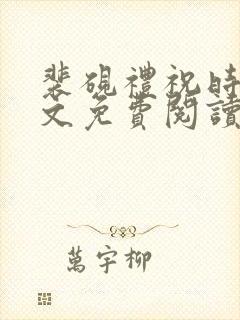 裴硯禮祝時
文免費閱讀
萬宇柳